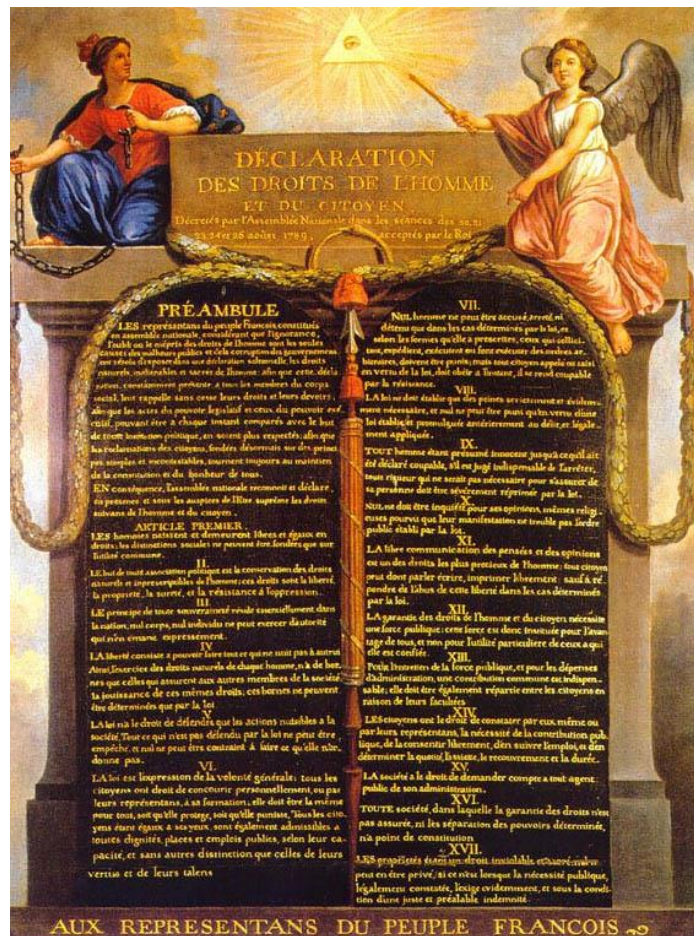 DÉCLARATION
DES DROITS DE L'HOMME
ET DU CITOYEN
Décretés par l'Assemblée Nationale dans les séances des 20, 21
23, 24 et 26 août 1789, acceptés par le Roi
PRÉAMBULE
LES représentans du peuple François, constitués
en assemblée nationale, considérant que l'ignorance,
l'oubli ou le mépris des droits de l'homme sont les seules
causes des malheurs publics et de la corruption des gouvernemens
ont résolu d'exposer dans une déclaration solemnelle, les droits
naturels, inaliénables et sacrés de l'homme; afin que cette décla
ration, constamment présente a tous les membres du corps
social, leur rappelle sans cesse leurs droits et leurs devoirs,
afin que les actes du pouvoir legislatif et ceux du pouvoir exé
cutif, pouvant être a chaque instant comparés avec le but
de toute institution politique, en soient plus respectés; afin que
les reclamations des citoyens, fondées désormais sur des princi
pes simples et incontestables, tournent toujours au maintien
de la constitution et du bonheur de tous.
EN conséquence, l'assemblée nationale reconnoit et déclare,
en presence et sous les auspices de l'Etre suprême les droits
suivans de l'homme et du citoyen.
ARTICLE PREMIER.
LES hommes naissent et demeurent libres et égaux en
droits; les distinctions sociales ne peuvent être fondées que sur
l'utilité commune.
II.
LE but de toute association politique est la conservation des droits
naturels et imprescriptibles de l'homme; ces droits sont la liberté,
la propriété, la sureté, et la résistance à l'oppression.
III.
LE principe de toute souveraineté réside essentiellement dans
la nation, nul corps, nul individu ne peut exercer d'autorité
qui n'en émane expressément.
IV
LA liberté consiste a pouvoir faire tout ce qui ne nuit pas à autrui
Ainsi, l'exercice des droits naturels de chaque homme, n'a de bor-
nes que celles qui assurent aux autres membres de la société
la jouissance de ces mêmes droits; ces bornes ne peuvent
être déterminées que par la loi
V
LA loi n'a le droit de défendre que les actions nuisibles à la
société. Tout ce qui n'est pas défendu par la loi ne peut être
empêché, et nul ne peut être contraint à faire ce qu'elle n'or-
donne pas.
VI.
LA loi est l'expression de la volonté générale; tous les
citoyens ont droit de concourir personnellement, ou par
leurs représentans, à sa formation; elle doit être la même
pour tous, soit qu'elle protege, soit qu'elle punisse. Tous les cito
yens étant égaux à ses yeux, sont également admissibles à
toutes dignités, places et emplois publics, selon leur ca-
pacité, et sans autres distinction que celles de leurs
vertus et de leurs talens
VII.
NUL homme ne peut être accusé, arreté, ni
détenu que dans les cas déterminés par la loi, et
selon les formes qu'elle a prescrites, ceux qui sollici-
tent, expédient, exécutent ou font exécuter des ordres ar-
bitraires, doivent être punis; mais tout citoyen appelé ou saisi
en vertu de la loi, doit obéir a l'instant, il se rend coupable
par la résistance.
VIII.
LA loi ne doit établir que des peines strictement et évidem-
ment nécessaire, et nul ne peut être puni qu'en vertu d'une
loi établie et promulguée antérierement au délit, et légale-
ment appliquée.
IX.
TOUT homme étant présumé innocent jusqu'a ce qu'il ait
été déclaré coupable, s'il est jugé indispensable de l'arrêter,
toute rigueur qui ne serait pas nécessaire pour s'assurer de
sa personne doit être sévèrement réprimée par la loi.
X.
NUL ne doit être inquiété pour ses opinions, mêmes religi-
euses pourvu que leur manifestation ne trouble pas l'ordre
public établi par la loi.
XI.
LA libre communication des pensées et des opinions
est un des droits les plus precieux de l'homme: tout citoyen
peut dont parler écrire, imprimer librement: sauf à ré-
pondre de l'abus de cette liberté dans les cas déterminés
par la loi.
XII.
LA garantie des droits de l'homme et du citoyen nécessite
une force publique: cette force est donc instituée pour l'avan-
tage de tous, et non pour l'utilité particuliere de ceux a qui
elle est confiée.
XIII.
Pour l'entretien de la force publique, et pour les dépenses
d'administration, une contribution commune est indispen-
sable; elle doit être également répartie entre les citoyens en
raison de leurs facultées
XIV.
LES citoyens ont le droit de constater par eux même ou
par leurs représentans, la nécessité de la contribution pub-
lique, de la consentir librement, d'en suivre l'emploi, et d'en
déterminer la quotité, l'assiette, le recouvrement et la durée.
XV.
LA société a le droit de demander compte a tout agent
public de son administration.
XVI.
TOUTE société, dans laquelle la garantie des droits n'est
pas assurée, ni les séparation des pouvoirs déterminée,
n'a point de constitution
XVII.
LES propriétés étant un droit inviolable et sacré, nul ne
peut en être privé, si ce n'est lorsque la nécessité publique,
légalement constatée, l'exige evidemment, et sous la condi-
tion d'une juste et préalable indemnité.
AUX REPRESENTANS DU PEUPLE FRANCOIS